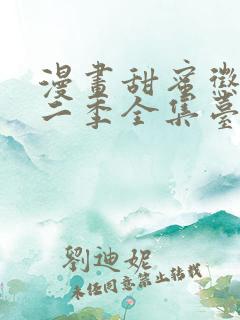 漫畫甜蜜懲
二季全集臺
劉迪妮
未经同意禁止转载